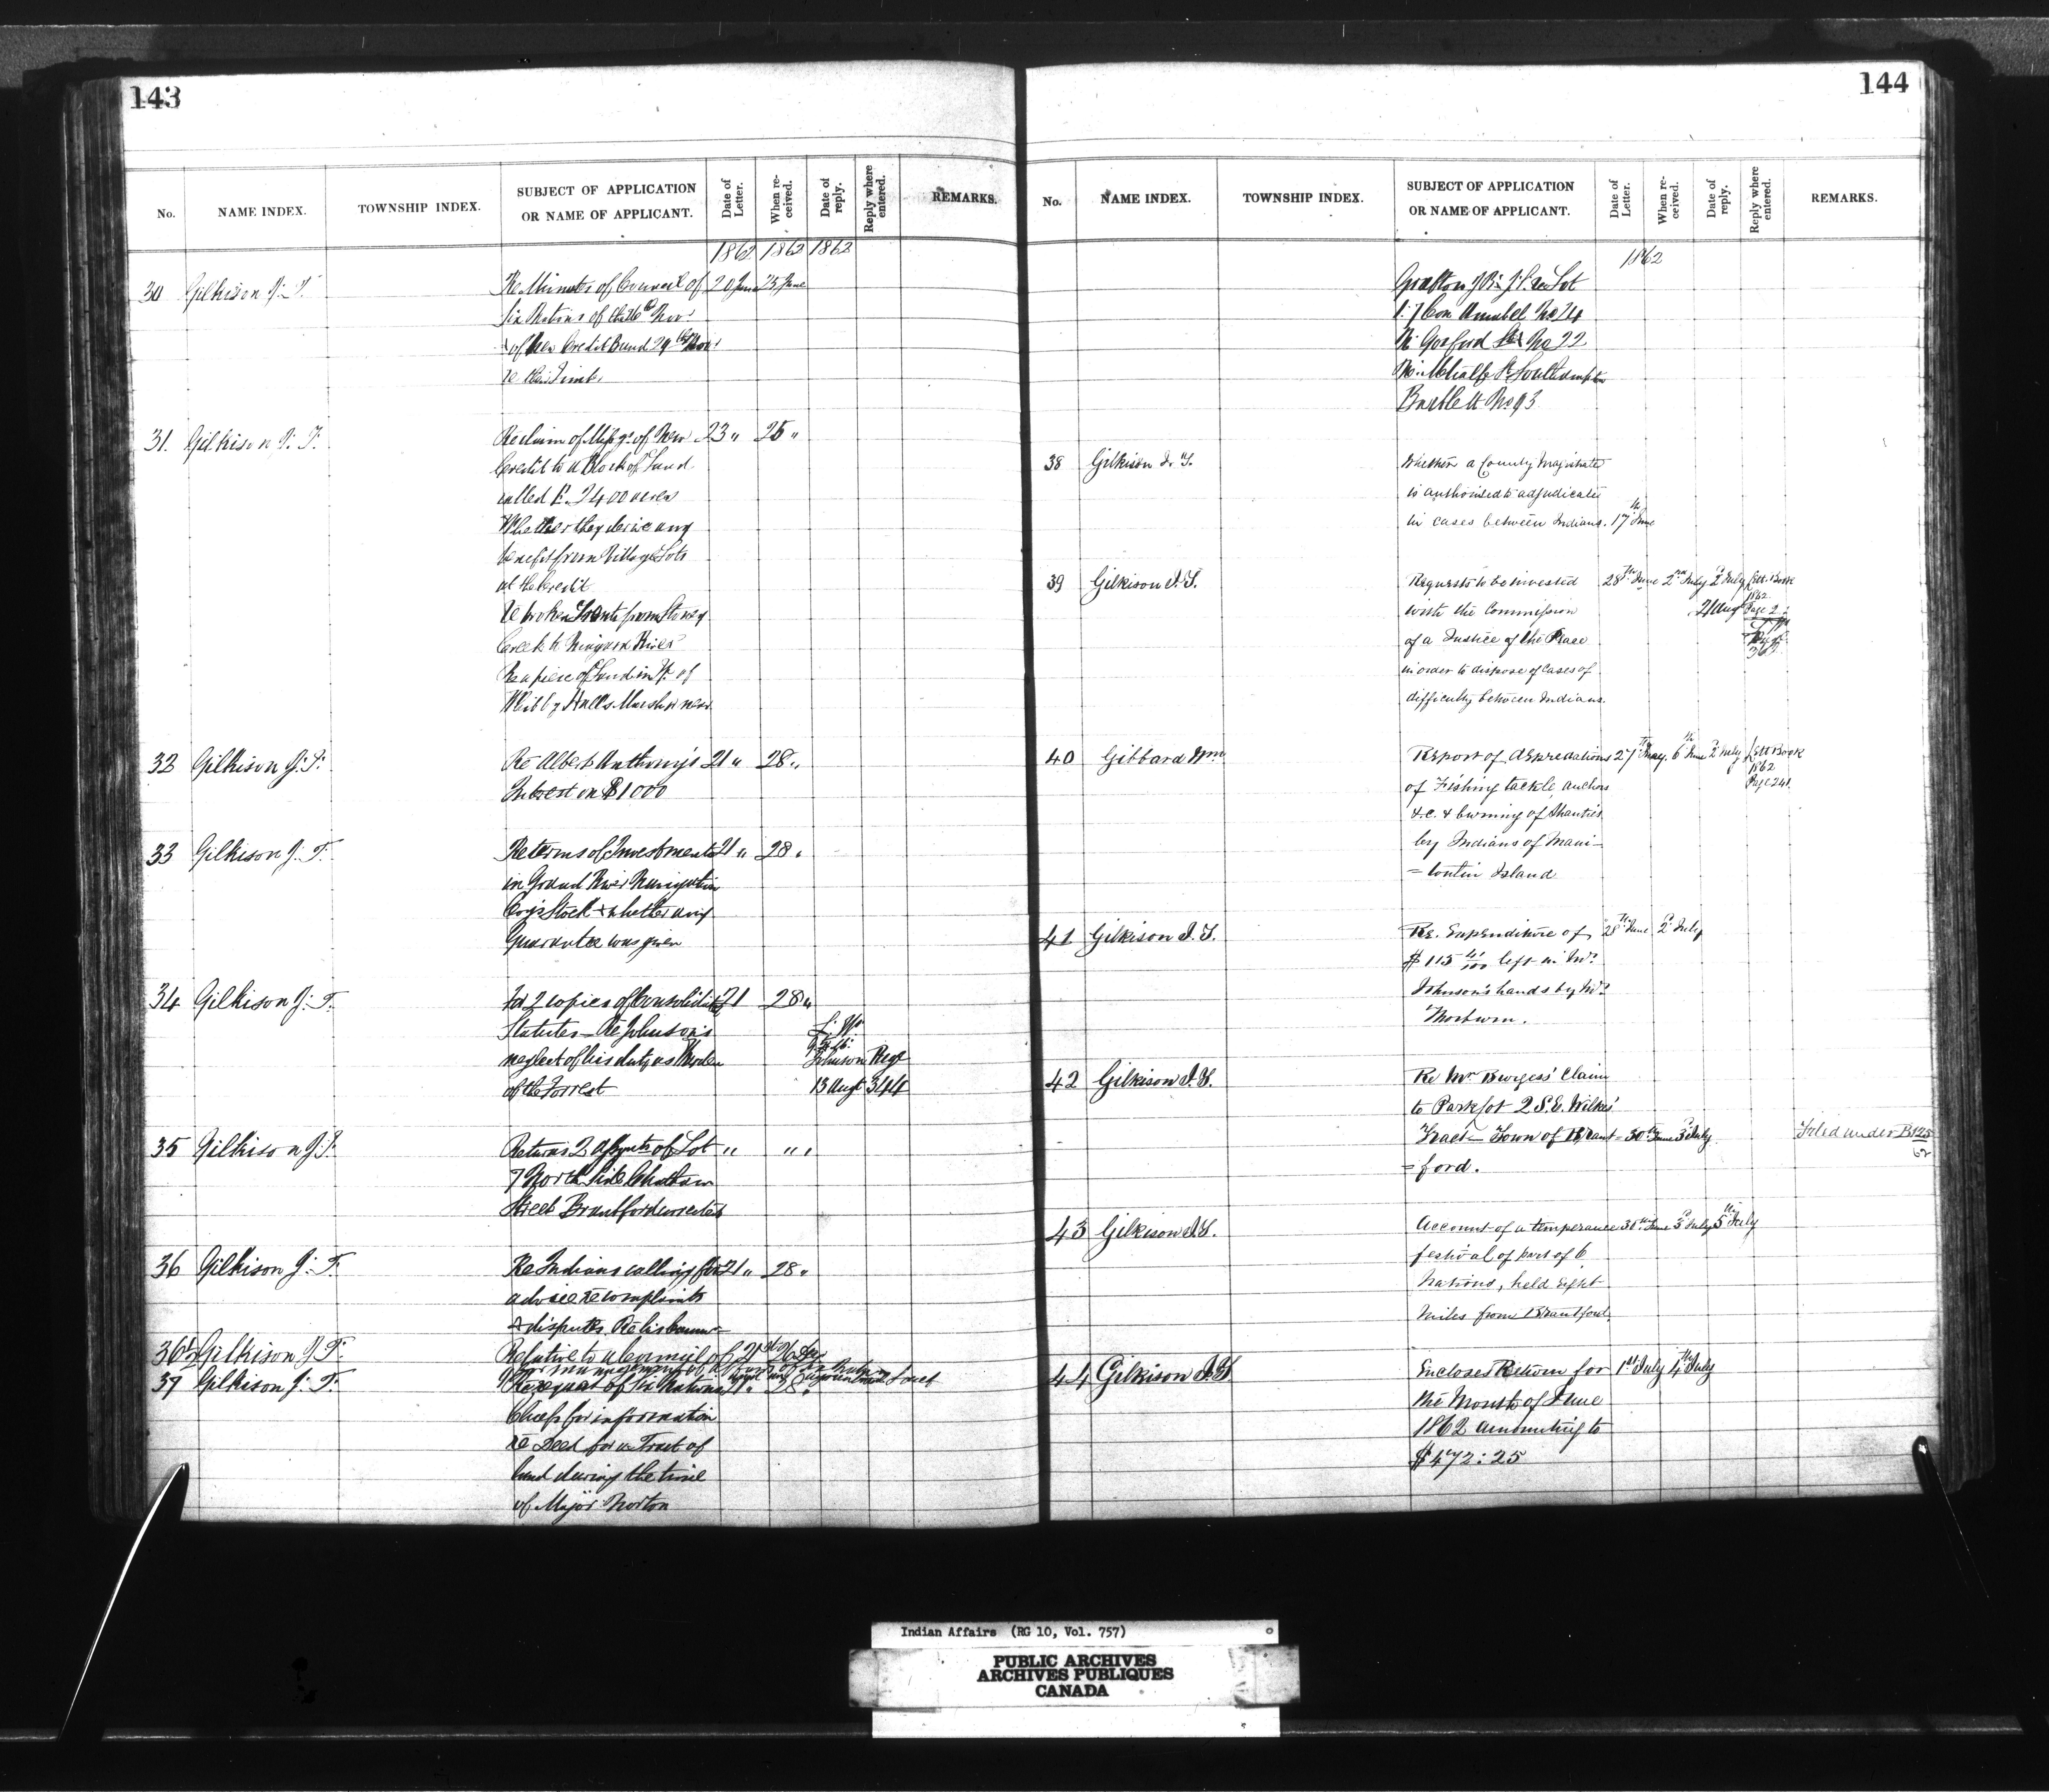 143
No. NAME INDEX. TOWNSHIP INDEX. SUBJECT OF APPLICATION OR NAME OF APPLICANT. Date of Letter. When received. Date of reply. Reply where entered. REMARKS.
1862 1862 1862
30 Gilkison J. T. Re Minutes of Council of 20 June 25 June
Six Nations of the Nov.
& of New Credit Band 29th Nov
re their Timber
31. Gilkison J. T. Re claim of of New 23 " 25 "
Credit to a Block of Land
called 2400 acres
Whether they derive any
benefit from Village Lots
at the Credit
Re broken Fronts from Stoney
Creek to Niagara River
Re a piece of Land in of
Whitby Halls Marsh
32 Gilkison J. T. Re Albert Anthony's 21 " 28 "
Interest on $1000
33 Gilkison J. T. Re terms of Investments 21 " 28 "
in Grand River Navigation
Coy's Stock & whether any
Guarantee was given
34 Gilkison J. T. For 2 copies of Consolidated 21 28 "
Statutes – Re Johnson's
neglect of his duty as Warden Johnson Page
of the Forrest 13 Augt 344
35 Gilkison J. T. Returns 2 of Lot " " "
7 North side Chatham
Street Brantford corrected
36 Gilkison J. T. Re Indians calling for 21 " 28 "
advice re complaints
& disputes. Re his
36½ Gilkison J. T. Relative to a Council of 6 21st 26
37 Gilkison J. T. Re request of Six Nations 21 " 28 "
Chiefs for information
re Deed for a Tract of
land during the time
of Major Norton
144
No. NAME INDEX. TOWNSHIP INDEX. SUBJECT OF APPLICATION OR NAME OF APPLICANT. Date of Letter. When received. Date of reply. Reply where entered. REMARKS.
1862
Lot
Con Amabel No 24
N. Gosford St No 22
N. Metcalfe St Southampton
Bartlett No 93
38 Gilkison J. T. Whether a County Magistrate
is authorized to adjudicate
in cases between Indians. 17th June
39 Gilkison J. T. Requests to be invested 28th June 2nd July 2 July Lett. Book
with the Commission 21 Aug 1862 Page 2
of a Justice of the Peace
in order to dispose of Cases of
difficulty between Indians.
40 Gibbard Wm Report of depredations 27th May. 6th June 2 July Lett Book
of Fishing tackle, anchors 1862
&c. & burning of Shanties Page 241.
by Indians of Mani-
=toulin Island
41 Gilkison J. T. Re. Expenditure of 28th June 2d July
$115 left in Mr
Johnson's hands by Mr
42 Gilkison J. T. Re Mr Burgess' Claim
to Park Lot 2 S.E. Wilkes'
Tract – Town of Brant= 30th June 3d July Filed under B125
=ford. 62
43 Gilkison J. T. Account of a temperance 30th June 3d July 5th July
festival of part of 6
Nations, held eight
miles from Brantford.
44 Gilkison J. T. Encloses Return for 1st July 4th July
the Month of June
1862 amounting to
$472:25
Indian Affairs (RG 10, Vol. 757)
PUBLIC ARCHIVES
ARCHIVES PUBLIQUES
CANADA